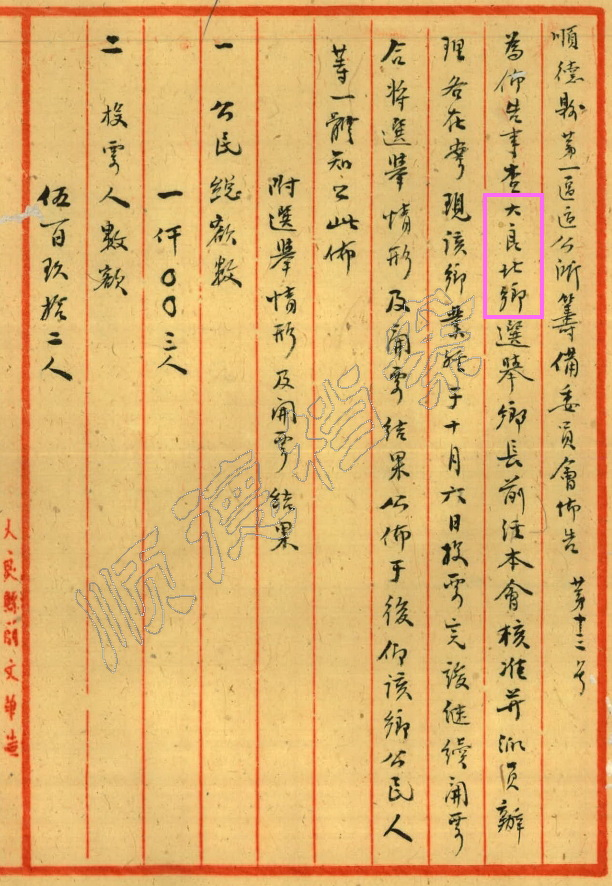 順德縣第一區區公所籌備委員會佈告 第十三号
為佈告事查大良北鄉選舉鄉長前經本會核准并派員辦
理各在案現該鄉業經于十月六日投票完竣继續開票
合將選舉情形及開票結果公佈于後仰該鄉公民人
等一體知之此佈
附選舉情形及開票結果
一 公民總額數
一仟〇〇三人
二 投票人數額
伍百玖拾二人
大良縣前文華造
順德档案